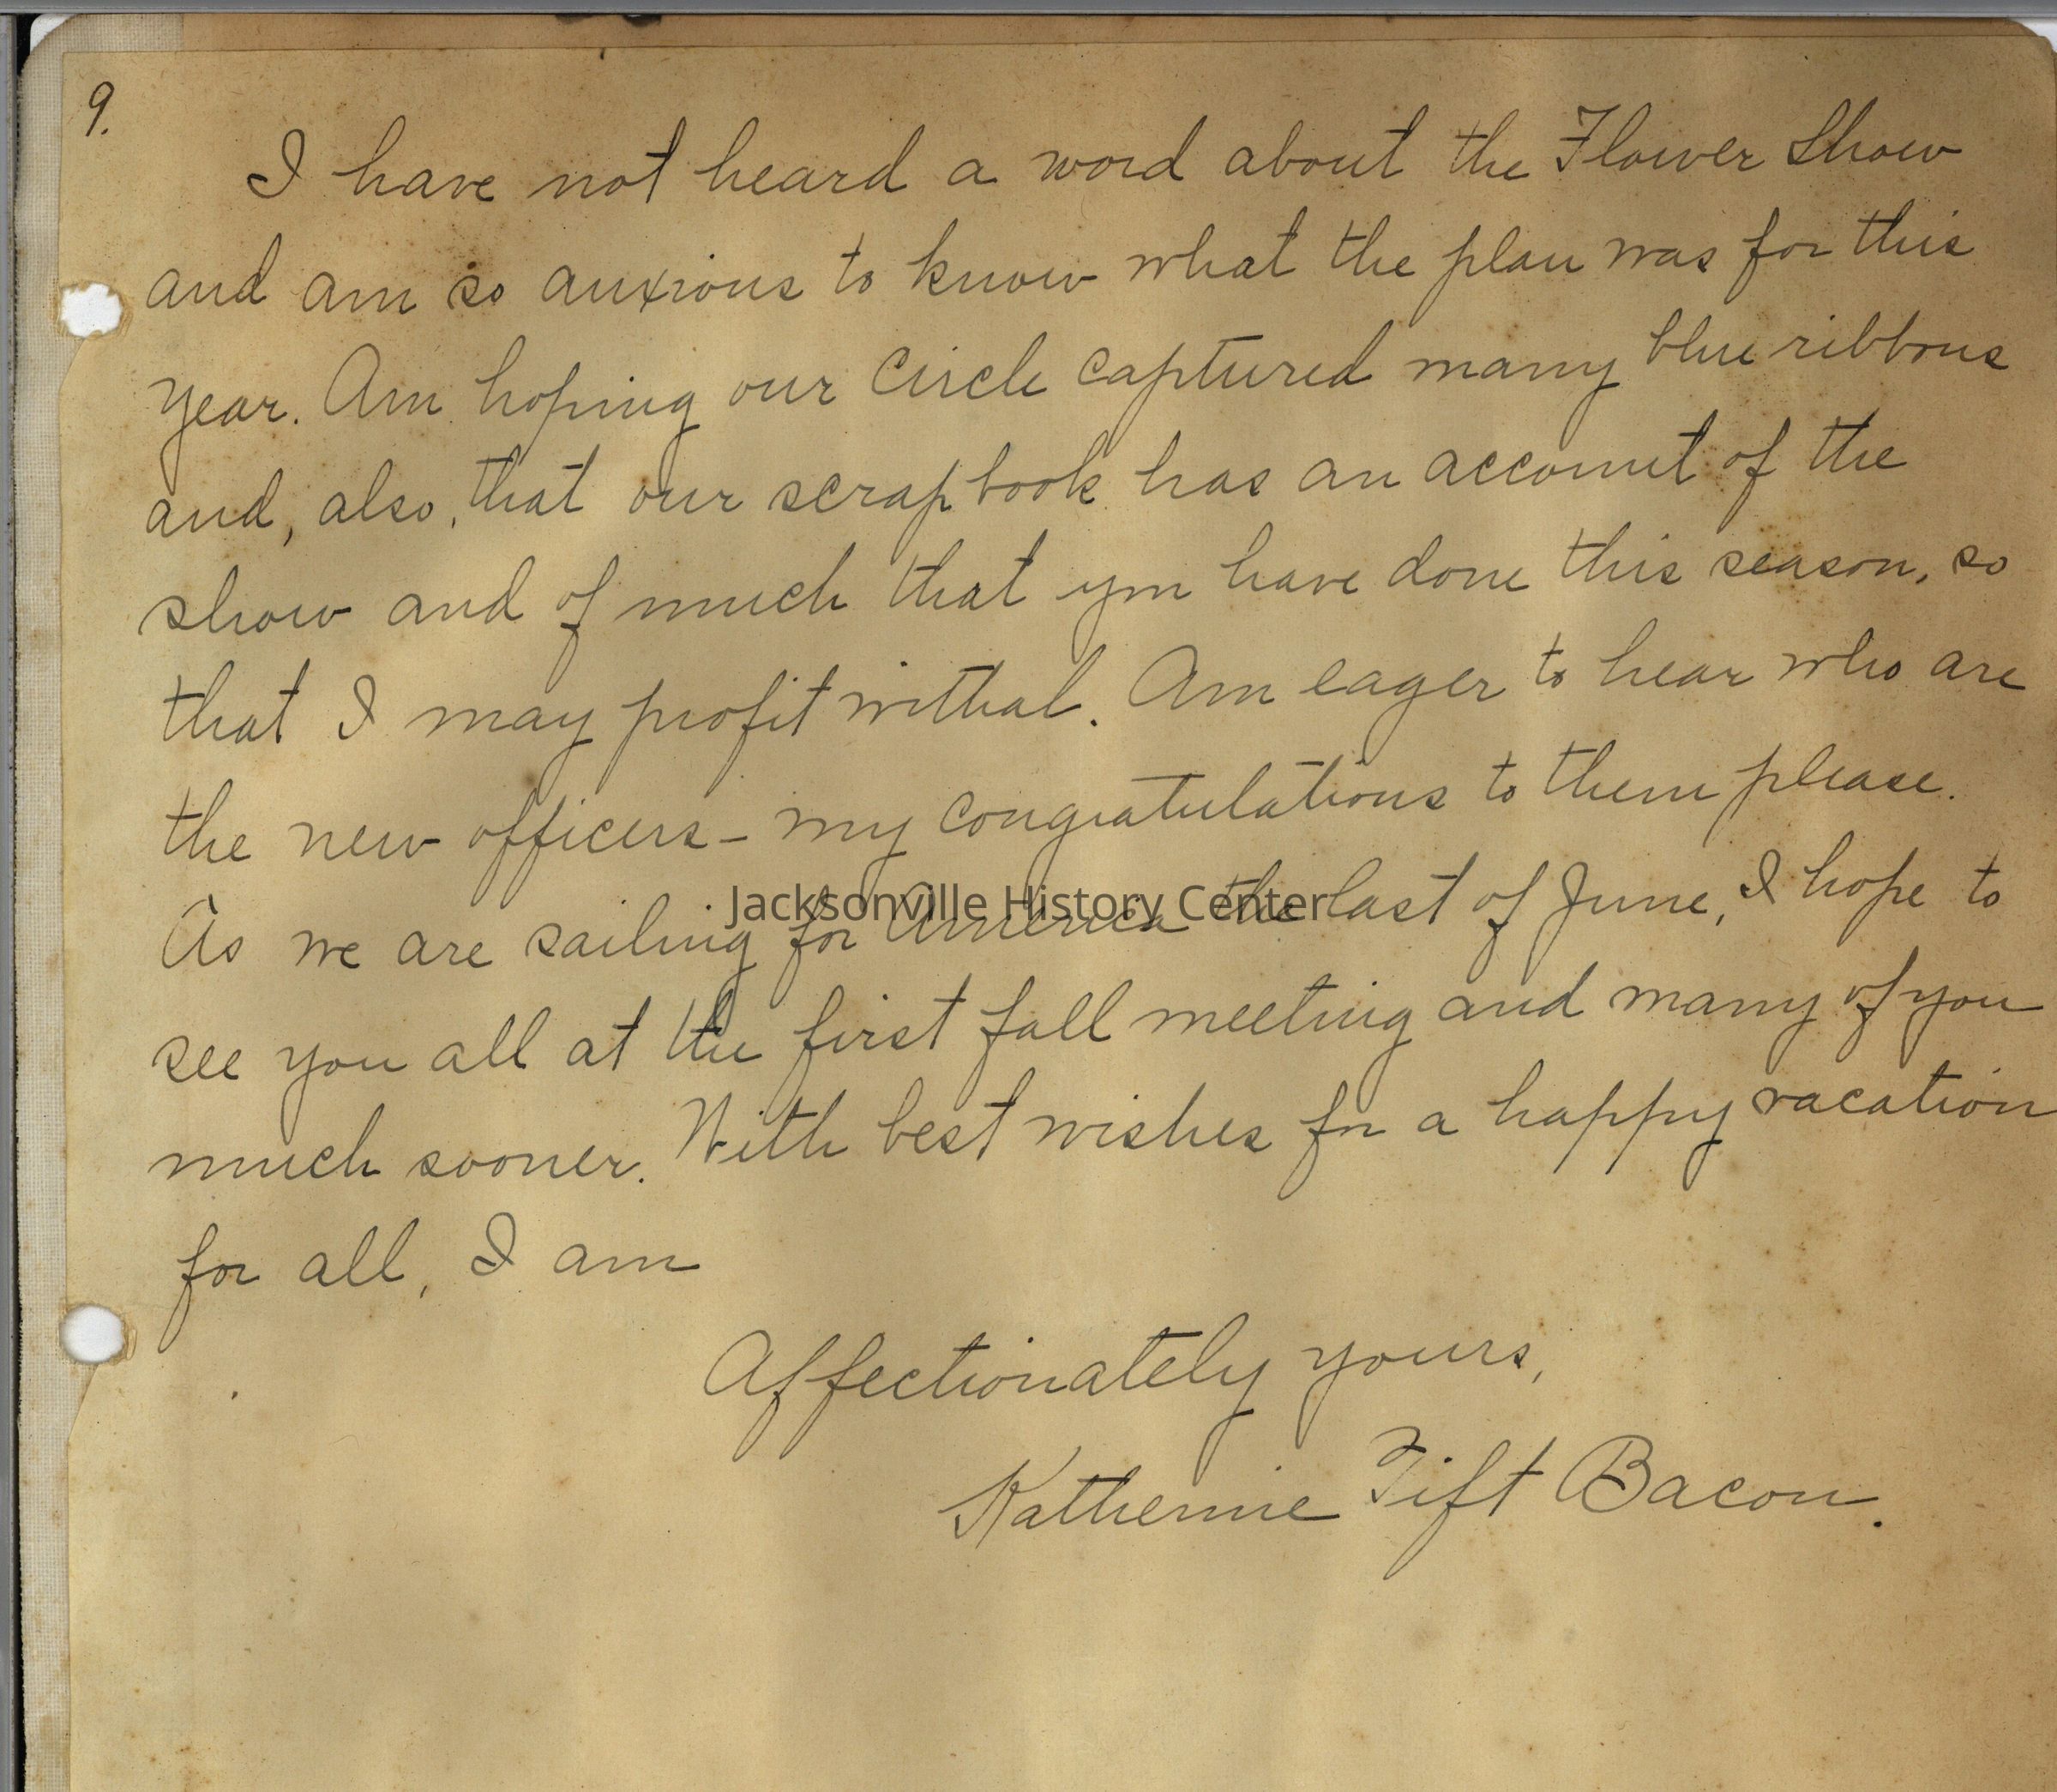 9.
I have not heard a word about the Flower Show
and am so anxious to know what the plan was for this
year. Am hoping our Circle captured many blue ribbons
and, also, that our scrap book has an account of the
show and of much that you have done this season, so
that I may profit withal. Am eager to hear who are
the new officers - my congratulations to them please.
As we are sailing for America the last of June, I hope to
Jacksonville History Center
see you all at the first fall meeting and many of you
much sooner. With best wishes for a happy vacation
for all, I am
Affectionately yours,
Katherine Tift Bacon.